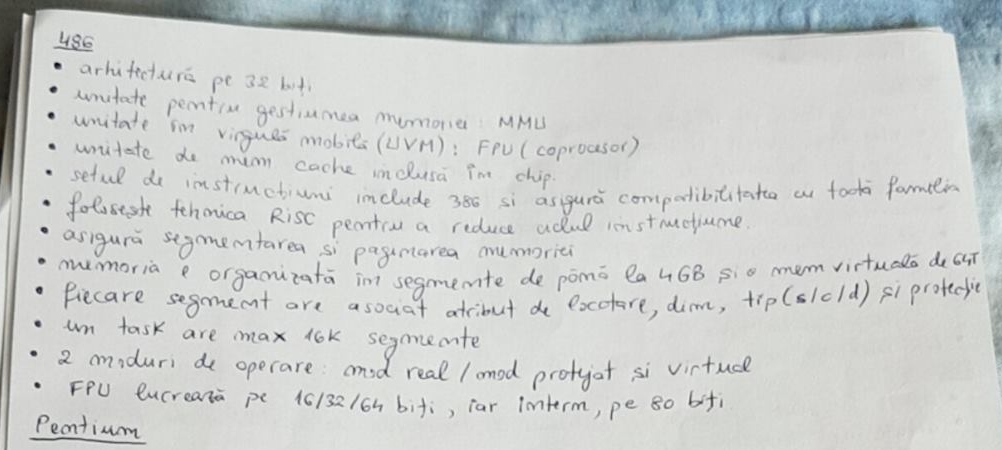 486
• arhitectură pe 32 biți
• unitate pentru gestiunea memoriei: MMU
• unitate în virgulă mobilă (UVM): FPU (coprocesor)
• unitate de mem cache inclusă în chip.
• setul de instrucțiuni include 386 și asigură compatibilitatea cu toată familia
• folosește tehnica RISC pentru a reduce ciclul instrucțiune.
• asigură segmentarea și paginarea memoriei
• memoria e organizată în segmente de până la 4GB și o mem virtuală de 64T
• fiecare segment are asociat atribut de locatare, dim, tip (s/c/d) și protecție
• un task are max 16K segmente
• 2 moduri de operare: mod real / mod protejat și virtual
• FPU lucrează pe 16/32/64 biți, iar interm, pe 80 biți
Pentium